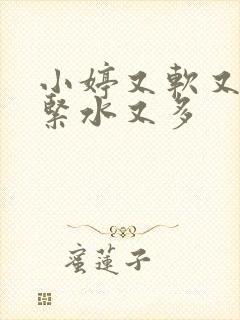 小婷又軟又
緊水又多
蜜蓮子